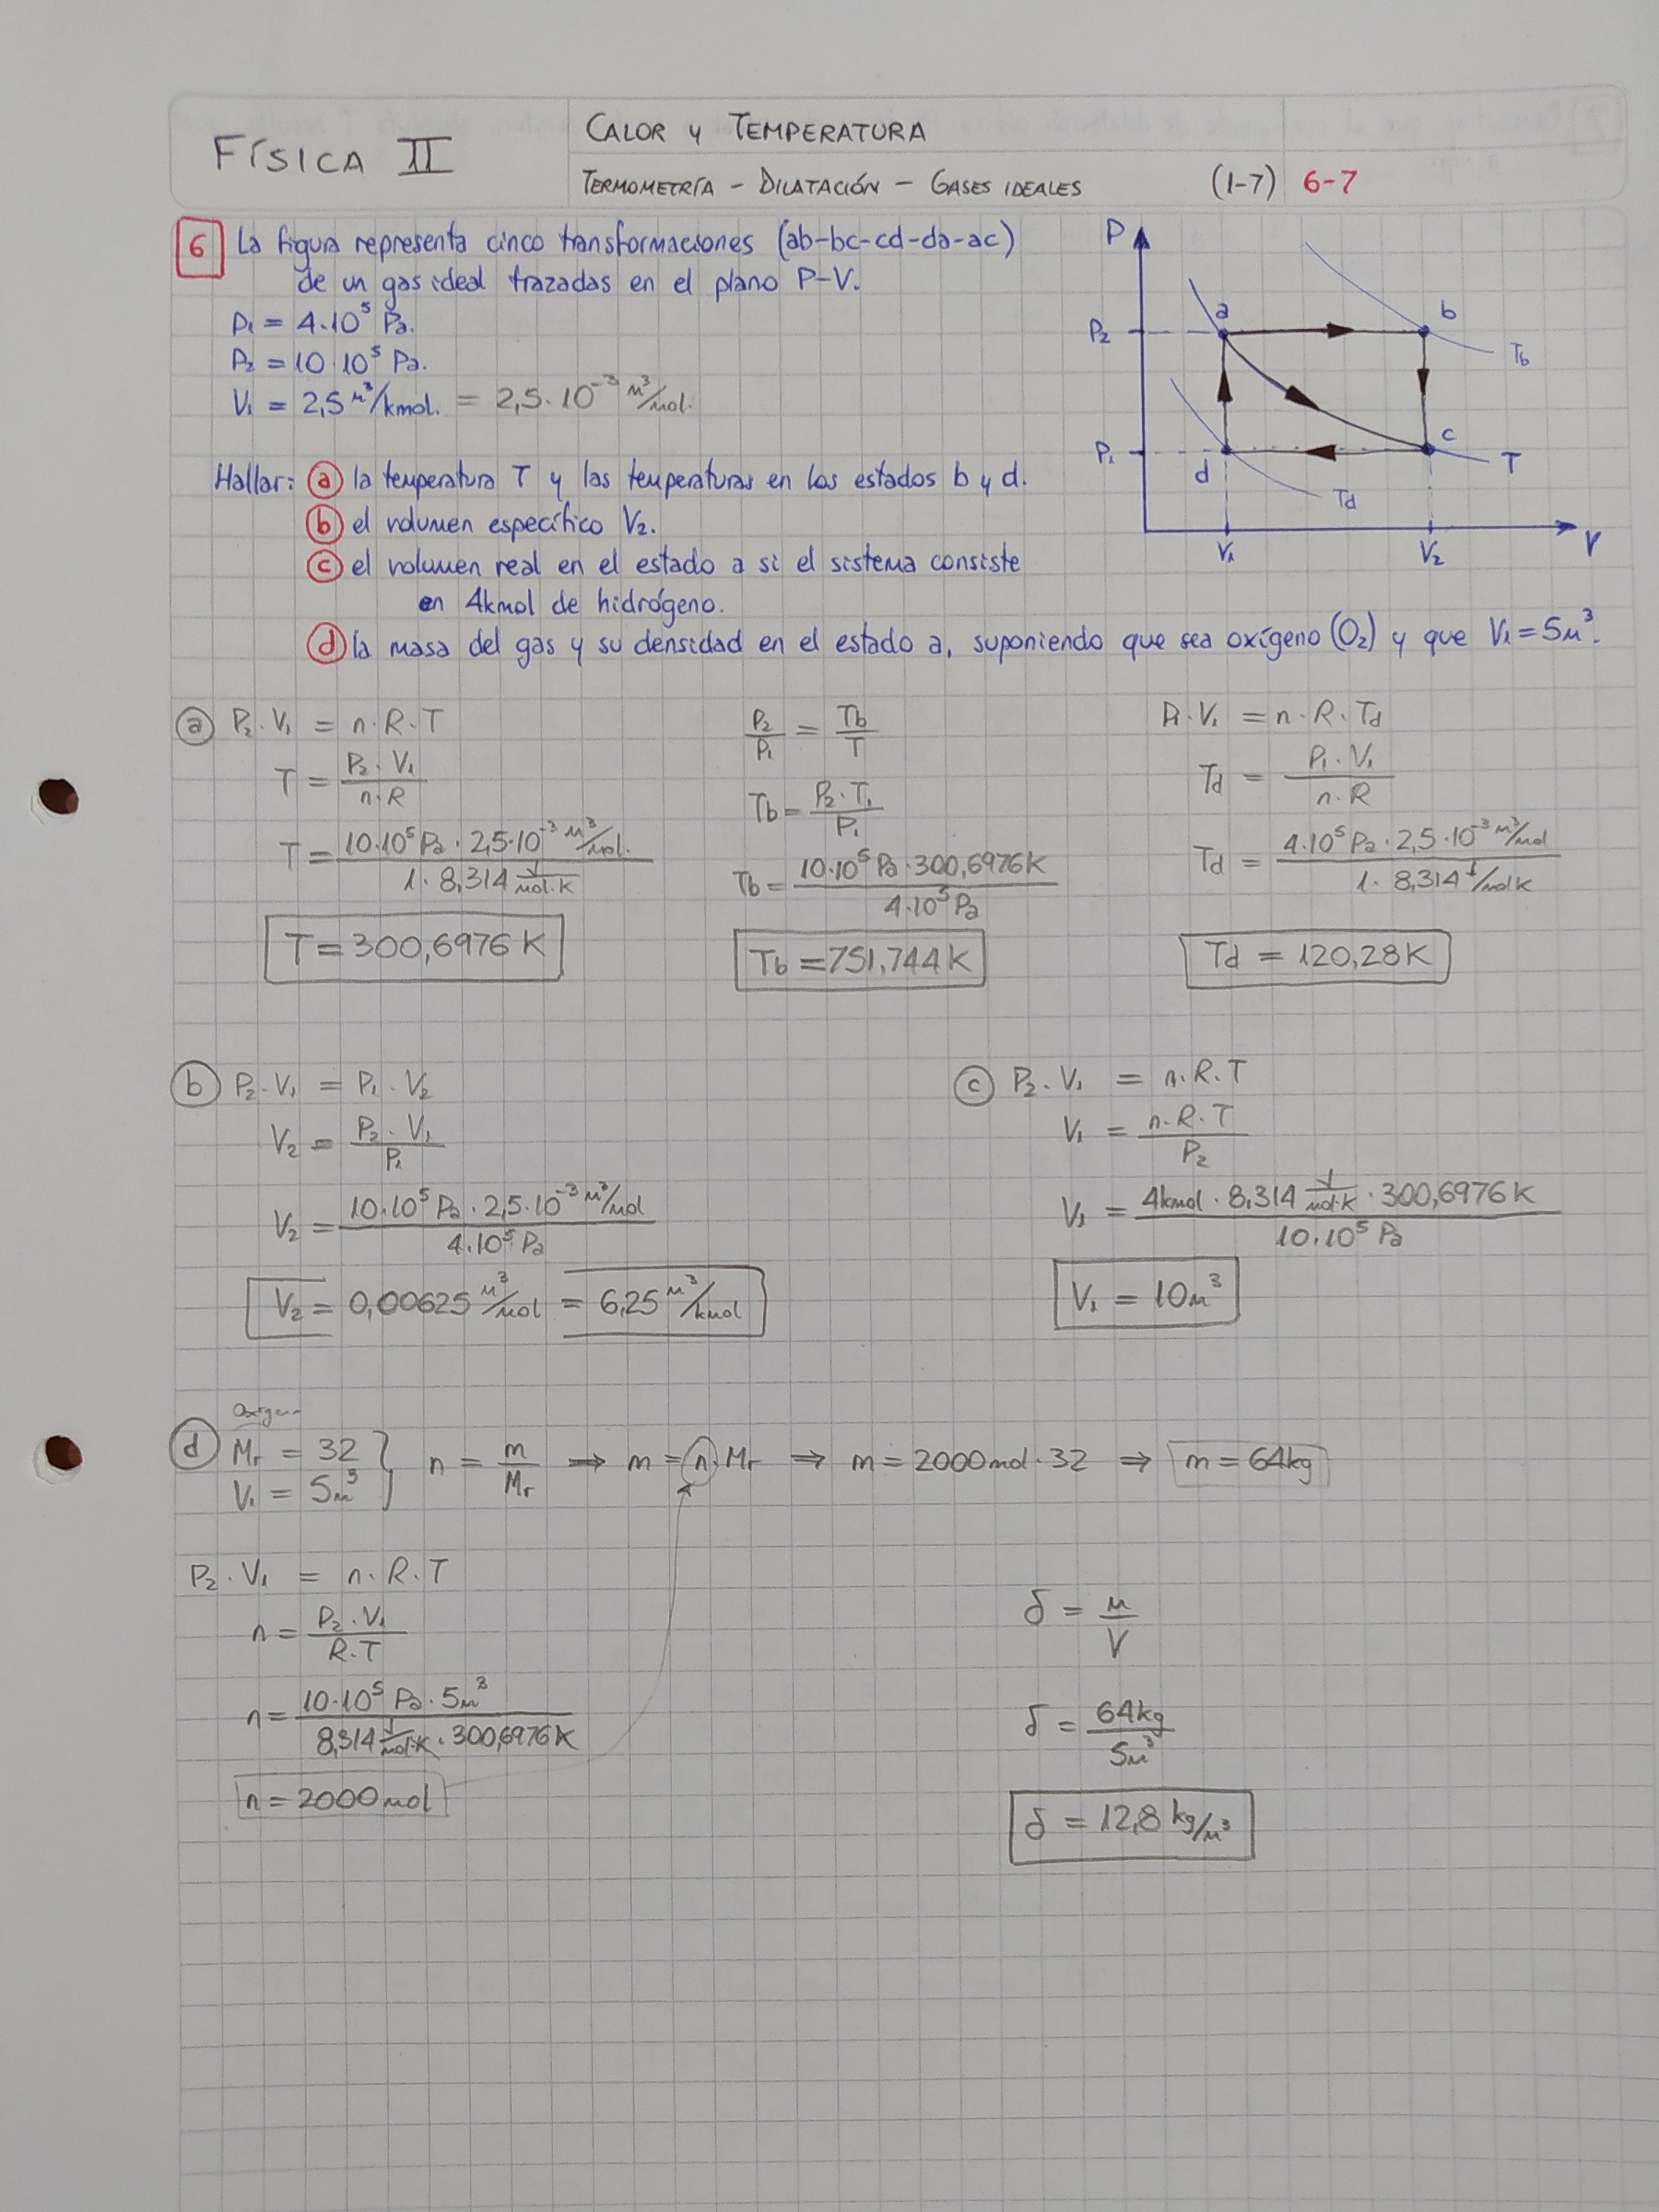 FÍSICA II
CALOR y TEMPERATURA
TERMOMETRÍA - DILATACIÓN - GASES IDEALES (1-7) 6-7
6 La figura representa cinco transformaciones (ab-bc-cd-da-ac)
de un gas ideal trazadas en el plano P-V.
P₁ = 4·10⁵ Pa.
P₂ = 10·10⁵ Pa.
V₁ = 2,5 m³/kmol. = 2,5·10⁻³ m³/mol.
P
a
b
P₂
Tb
c
P₁
d
T
Td
V₁
V₂
V
Hallar: a la temperatura T y las temperaturas en los estados b y d.
b el volumen específico V₂.
c el volumen real en el estado a si el sistema consiste
en 4kmol de hidrógeno.
d la masa del gas y su densidad en el estado a, suponiendo que sea oxígeno (O₂) y que V₁ = 5m³.
a P₂·V₁ = n·R·T
T = P₂·V₁ / n·R
T = 10·10⁵Pa · 2,5·10⁻³ m³/mol. / 1·8,314 J/mol·K
T = 300,6976 K
P₂/P₁ = Tb/T
Tb = P₂·T₁ / P₁
Tb = 10·10⁵ Pa·300,6976K / 4·10⁵ Pa
Tb = 751,744 K
P₁·V₁ = n·R·Td
Td = P₁·V₁ / n·R
Td = 4·10⁵ Pa·2,5·10⁻³ m³/mol / 1·8,314 J/molK
Td = 120,28K
b P₂·V₁ = P₁·V₂
V₂ = P₂·V₁ / P₁
V₂ = 10·10⁵ Pa·2,5·10⁻³ m³/mol / 4·10⁵ Pa
V₂ = 0,00625 m³/mol = 6,25 m³/kmol
c P₂·V₁ = n·R·T
V₁ = n·R·T / P₂
V₁ = 4kmol·8,314 J/mol·K·300,6976K / 10·10⁵ Pa
V₁ = 10m³
d Oxígeno
Mr = 32
V₁ = 5m³
} n = m/Mr ⇒ m = n·Mr ⇒ m = 2000mol·32 ⇒ m = 64kg
P₂·V₁ = n·R·T
n = P₂·V₁ / R·T
n = 10·10⁵ Pa·5m³ / 8,314 J/mol·K·300,6976K
n = 2000mol
δ = m/V
δ = 64kg / 5m³
δ = 12,8 kg/m³